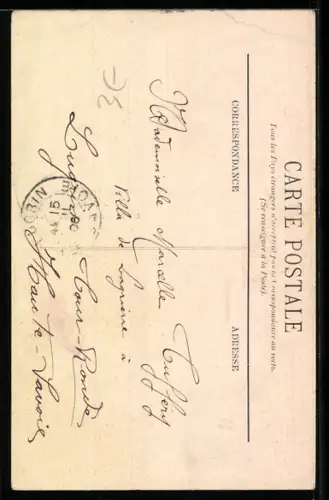 CARTE POSTALE
Tous les Pays étrangers n'acceptent pas la Correspondance au verso.
(Se renseigner à la Poste).
CORRESPONDANCE
ADRESSE
Mademoiselle Marcelle
Villa de à
Lugrin - Tour-Ronde
Haute-Savoie